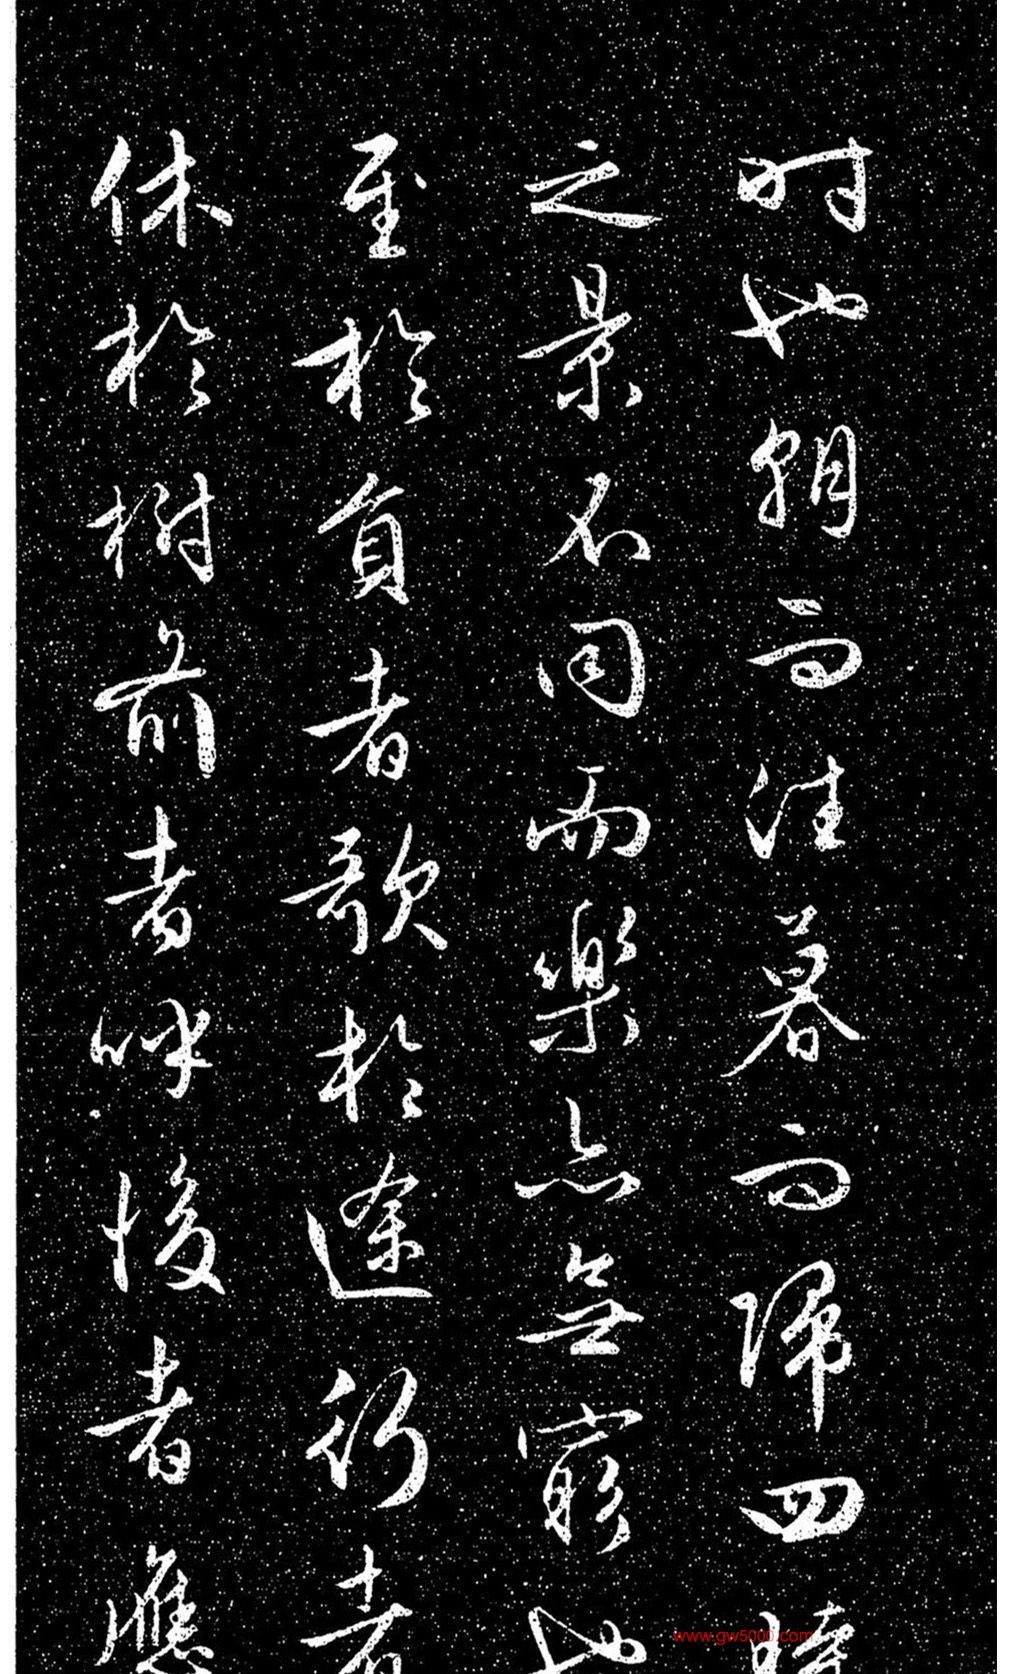 时也朝而往暮而歸四時
之景不同而樂亦無窮也
至於負者歌於途行者
休於樹前者呼後者應
www.gw5000.com